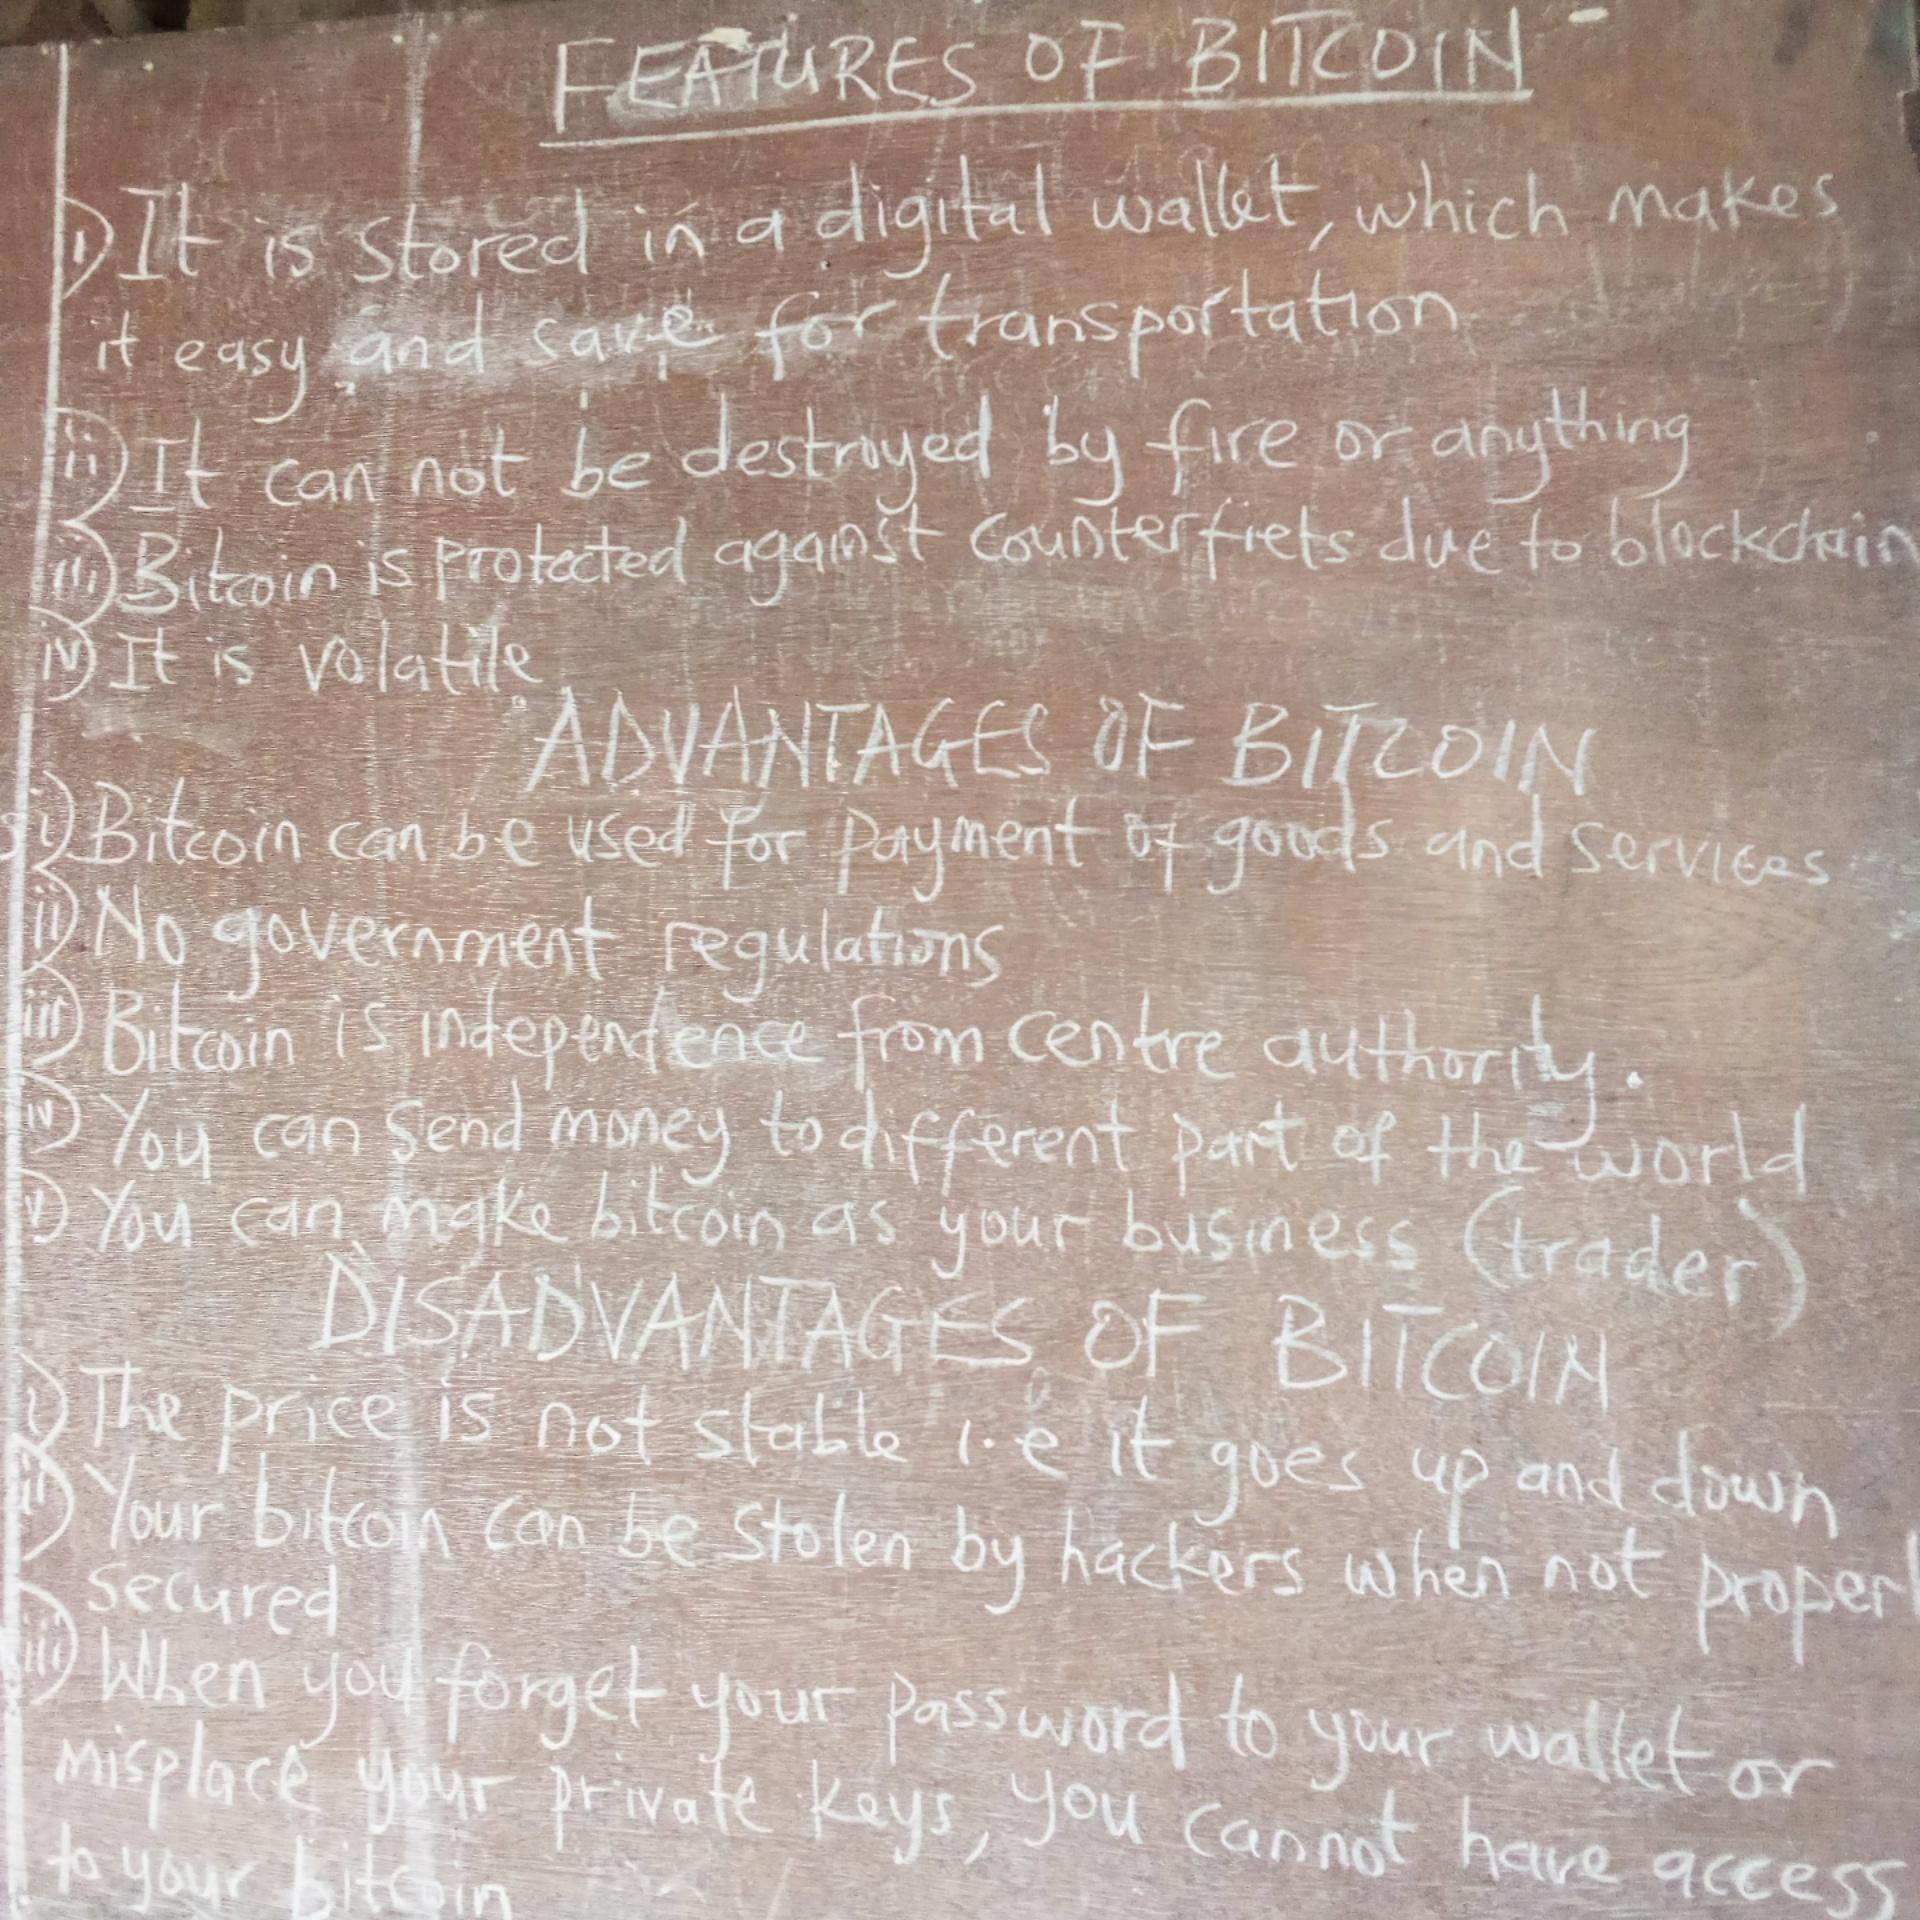 FEATURES OF BITCOIN
i) It is stored in a digital wallet, which makes
it easy and save for transportation
ii) It can not be destroyed by fire or anything
iii) Bitcoin is protected against counterfiets due to blockchain
iv) It is volatile
ADVANTAGES OF BITCOIN
i) Bitcoin can be used for payment of goods and services
ii) No government regulations
iii) Bitcoin is independence from centre authority.
iv) You can send money to different part of the world
v) You can make bitcoin as your business (trader)
DISADVANTAGES OF BITCOIN
i) The price is not stable i.e it goes up and down
ii) Your bitcoin can be stolen by hackers when not properl
secured
iii) When you forget your password to your wallet or
misplace your private keys, you cannot have access
to your bitcoin